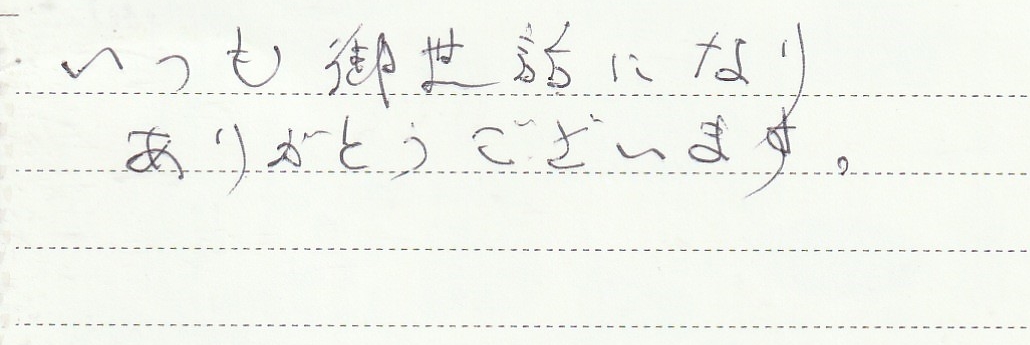 いつも御世話になり
ありがとうございます。